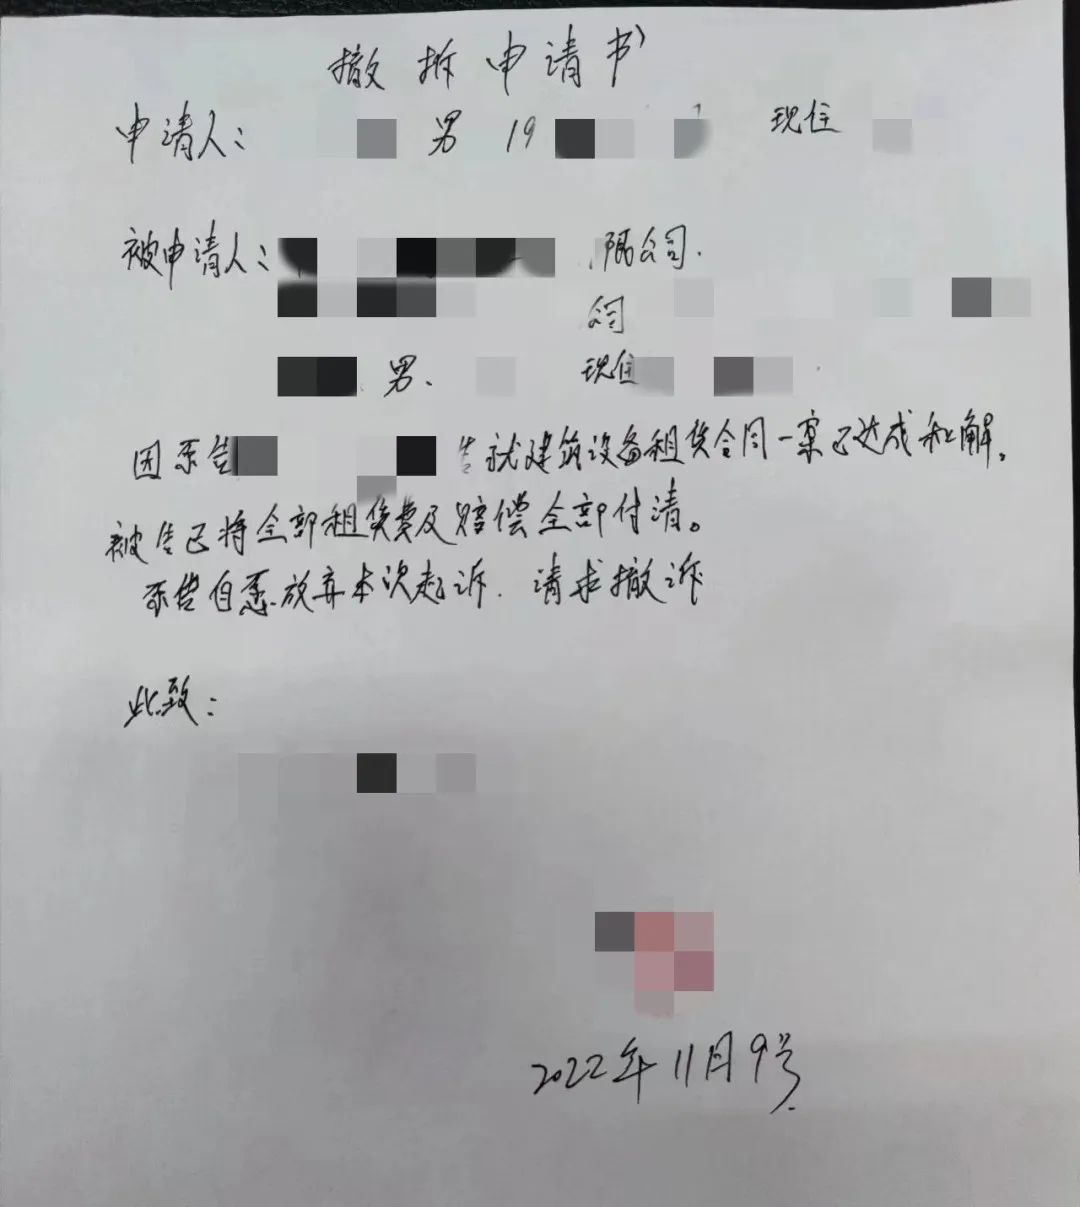 撤拆申请书
申请人： 男 19 现住
被申请人： 限公司.
公司
男. 现住
因原告 告就建筑设备租赁合同一案已达成和解。
被告已将全部租赁费及赔偿全部付清。
原告自愿放弃本次起诉. 请求撤诉
此致：
2022年11月9号